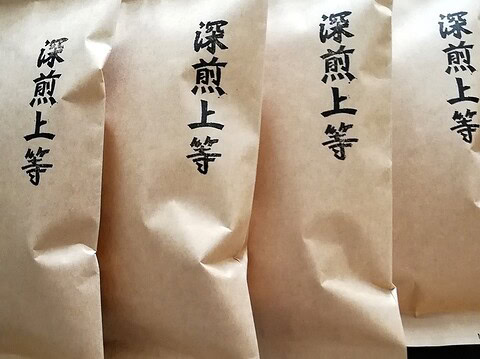 深煎上等
深煎上等
深煎上等
深煎上等